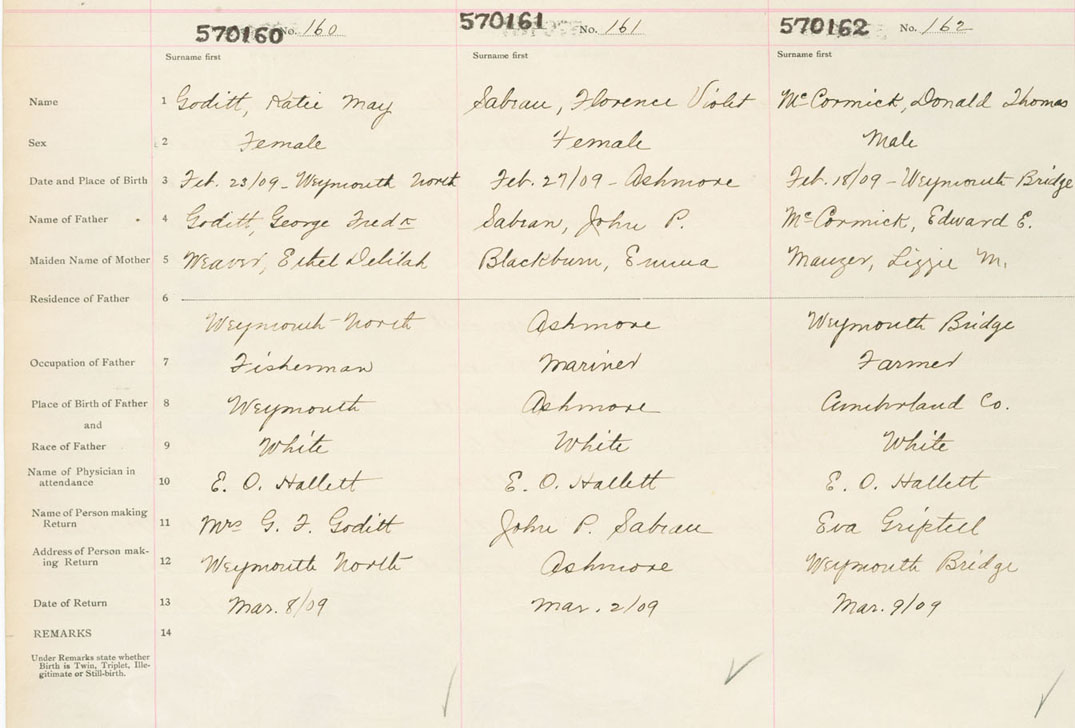 570160 No. 160 570161 No. 161 570162 No. 162
Surname first Surname first Surname first
Name 1 Goditt, Katie May Sabeau, Florence Violet McCormick, Donald Thomas
Sex 2 Female Female Male
Date and Place of Birth 3 Feb. 23/09 - Weymouth North Feb. 27/09 - Ashmore Feb. 18/09 - Weymouth Bridge
Name of Father 4 Goditt, George Fredk Sabean, John P. McCormick, Edward E.
Maiden Name of Mother 5 Weaver, Ethel Delilah Blackburn, Emma Mauzer, Lizzie M.
Residence of Father 6
Weymouth North Ashmore Weymouth Bridge
Occupation of Father 7 Fisherman Mariner Farmer
Place of Birth of Father 8 Weymouth Ashmore Cumberland Co.
and
Race of Father 9 White White White
Name of Physician in
attendance 10 E. O. Hallett E. O. Hallett E. O. Hallett
Name of Person making
Return 11 Mrs G. F. Goditt John P. Sabeau Eva Gripteel
Address of Person mak-
ing Return 12 Weymouth North Ashmore Weymouth Bridge
Date of Return 13 Mar. 8/09 Mar. 2/09 Mar. 9/09
REMARKS 14
Under Remarks state whether
Birth is Twin, Triplet, Ille-
gitimate or Still-birth.